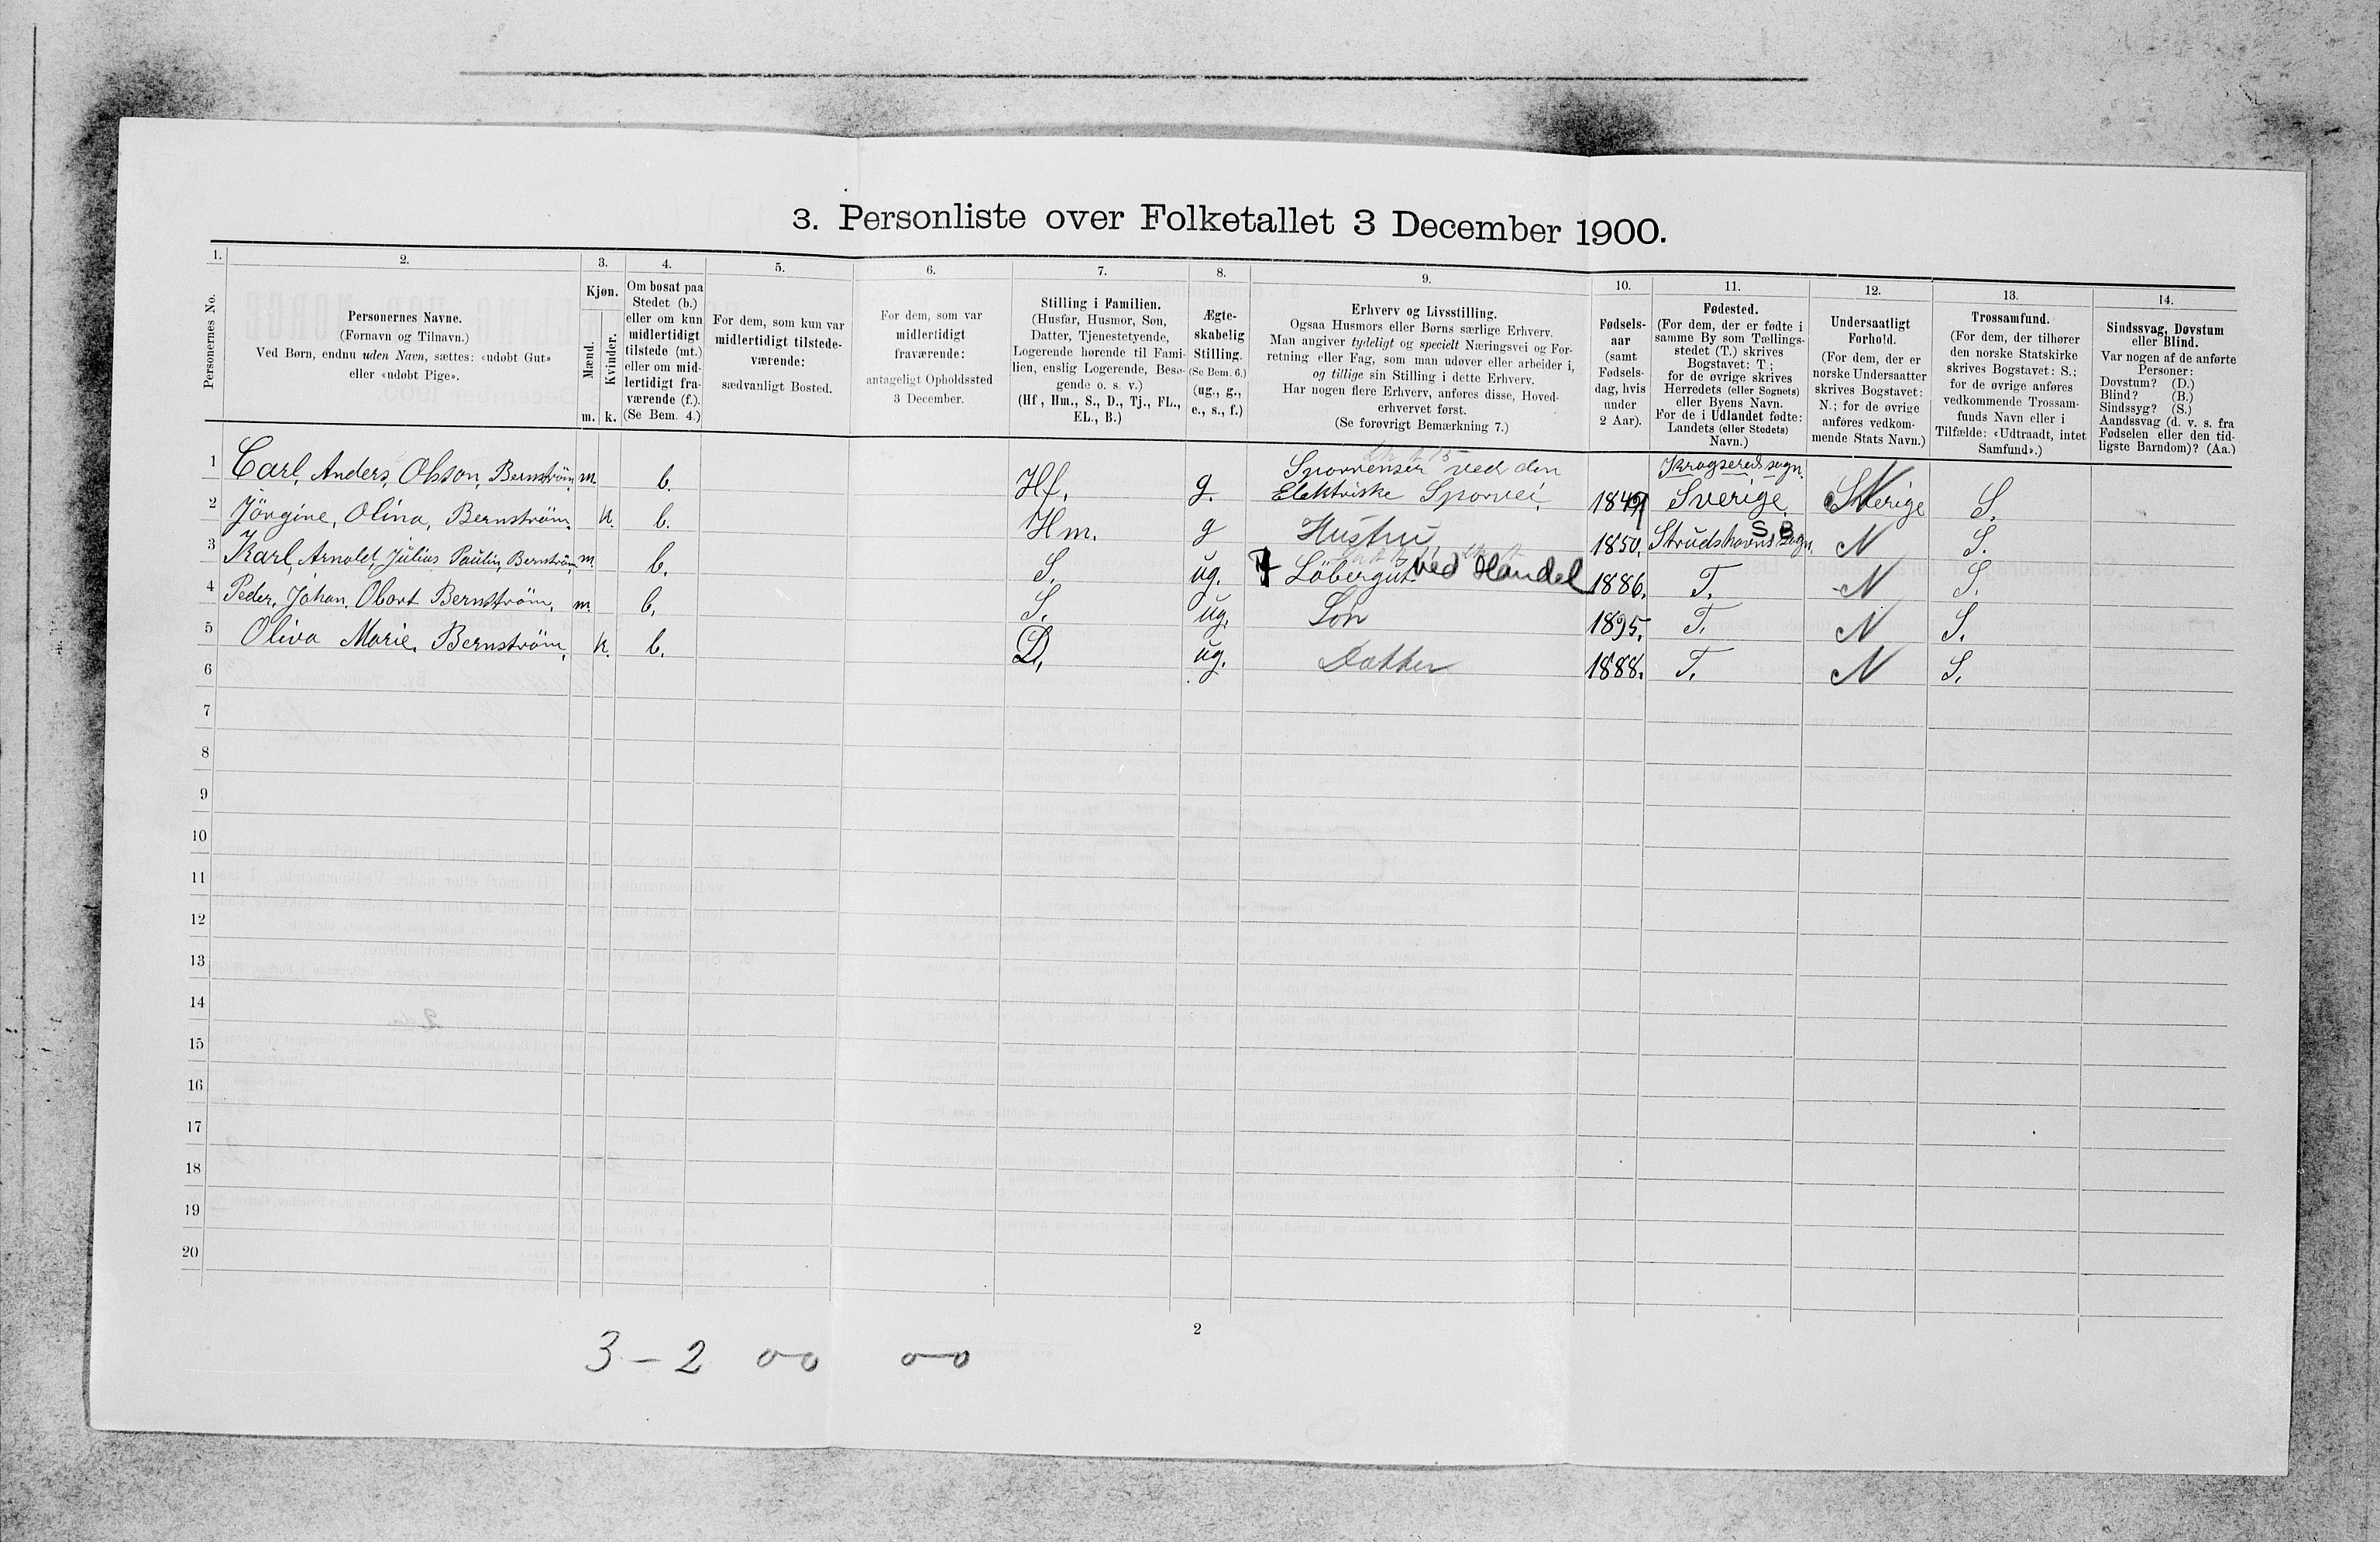 3. Personliste over Folketallet 3 December 1900.
1. 2. 3. 4. 5. 6. 7. 8. 9. 10. 11. 12. 13. 14.
Personernes No.
Personernes Navne.
(Fornavn og Tilnavn.)
Ved Børn, endnu uden Navn, sættes: «udøbt Gut»
eller «udøbt Pige».
Kjøn.
Mænd.
Kvinder.
m. k.
Om bosat paa
Stedet (b.)
eller om kun
midlertidigt
tilstede (mt.)
eller om mid-
lertidigt fra-
værende (f.).
(Se Bem. 4.)
For dem, som kun var
midlertidigt tilstede-
værende:
sædvanligt Bosted.
For dem, som var
midlertidigt
fraværende:
antageligt Opholdssted
3 December.
Stilling i Familien.
(Husfar, Husmor, Søn,
Datter, Tjenestetyende,
Logerende hørende til Fami-
lien, enslig Logerende, Besø-
gende o. s. v.)
(Hf, Hm., S., D., Tj., FL.,
EL., B.)
Ægte-
skabelig
Stilling.
(Se Bem. 6.)
(ug., g.,
e., s., f.)
Erhverv og Livsstilling.
Ogsaa Husmors eller Børns særlige Erhverv.
Man angiver tydeligt og specielt Næringsvei og For-
retning eller Fag, som man udøver eller arbeider i,
og tillige sin Stilling i dette Erhverv.
Har nogen flere Erhverv, anføres disse, Hoved-
erhvervet først.
(Se forøvrigt Bemærkning 7.)
Fødsels-
aar
(samt
Fødsels-
dag, hvis
under
2 Aar).
Fødested.
(For dem, der er fødte i
samme By som Tællings-
stedet (T.) skrives
Bogstavet: T;
for de øvrige skrives
Herredets (eller Sognets)
eller Byens Navn.
For de i Udlandet fødte:
Landets (eller Stedets)
Navn.)
Undersaatligt
Forhold.
(For dem, der er
norske Undersaatter
skrives Bogstavet:
N.; for de øvrige
anføres vedkom-
mende Stats Navn.)
Trossamfund.
(For dem, der tilhører
den norske Statskirke
skrives Bogstavet: S.;
for de øvrige anføres
vedkommende Trossam-
funds Navn eller i
Tilfælde: «Udtraadt, intet
Samfund».)
Sindssvag, Døvstum
eller Blind.
Var nogen af de anførte
Personer:
Døvstum? (D.)
Blind? (B.)
Sindssyg? (S.)
Aandssvag (d. v. s. fra
Fødselen eller den tid-
ligste Barndom)? (Aa.)
1 Carl, Anders, Olsson, Bernström m b. Hf. g. Sporrenser ved den Elektriske Sporvei, 1849 Sverige. Sverige N S.
2 Jörgine, Olina, Bernström. k. b. Hm. g Hustru 1850. N S.
3 Karl, Arnold, Julius Paulin, Bernström m b. S. ug. Löbergut ved Handel 1886. T. N S.
4 Peder, Johan, Obort Bernström, m. b. S. ug. Sön 1895. T. N S.
5 Oliva Marie, Bernström, k. b. D. ug. Datter 1888. T. N S.
6
7
8
9
10
11
12
13
14
15
16
17
18
19
20
2
3 - 2 0-0 0-0